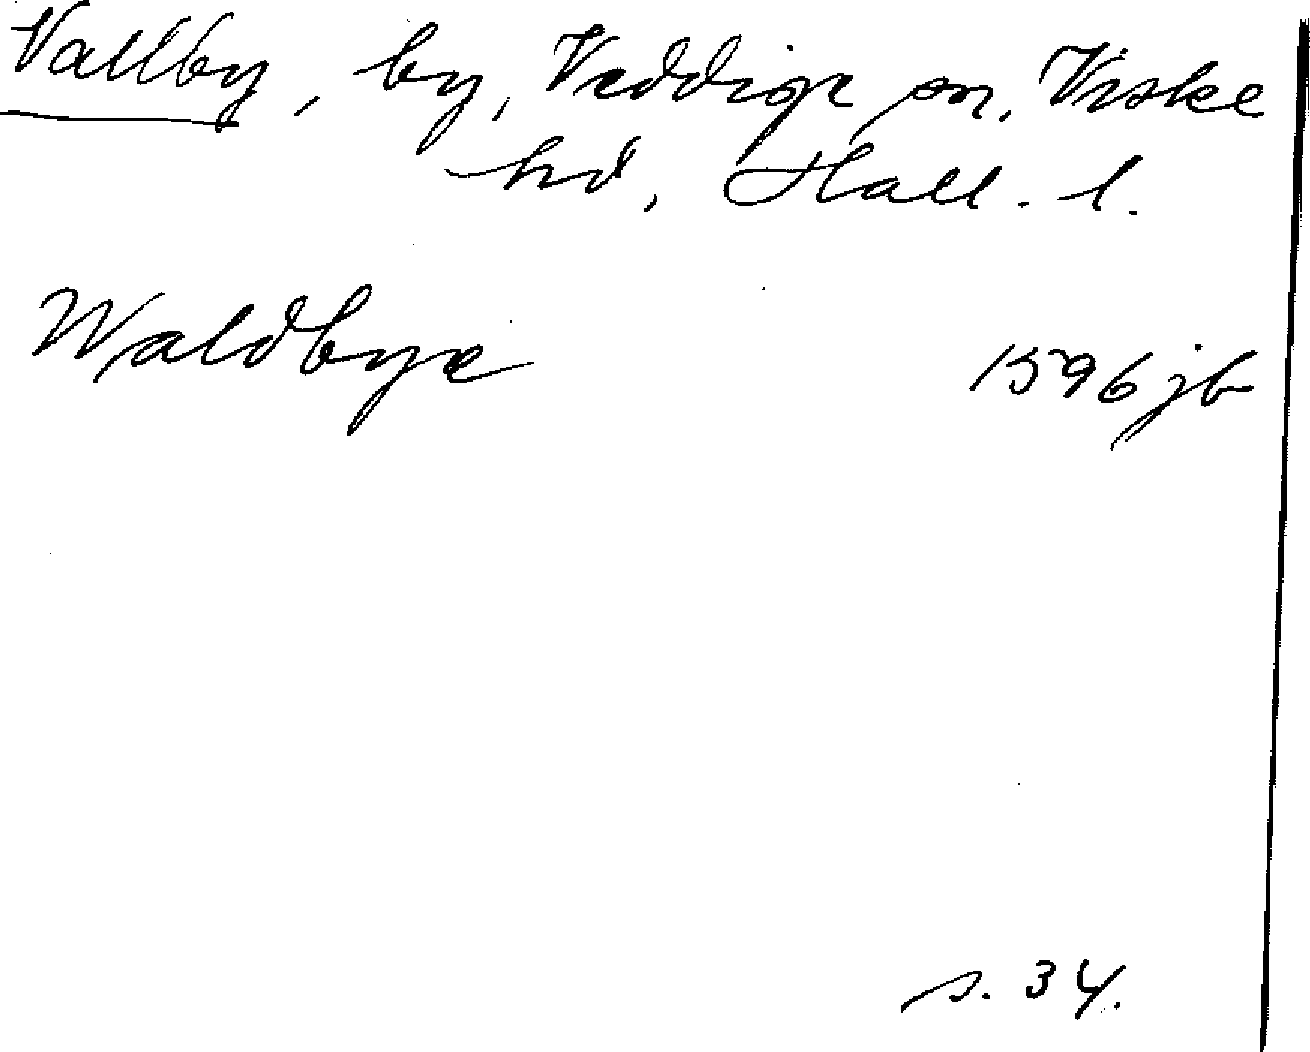 Vallby, by, Veddige sn, Viske
hd, Hall. l.
Waldbye 1596 jb
s. 34.